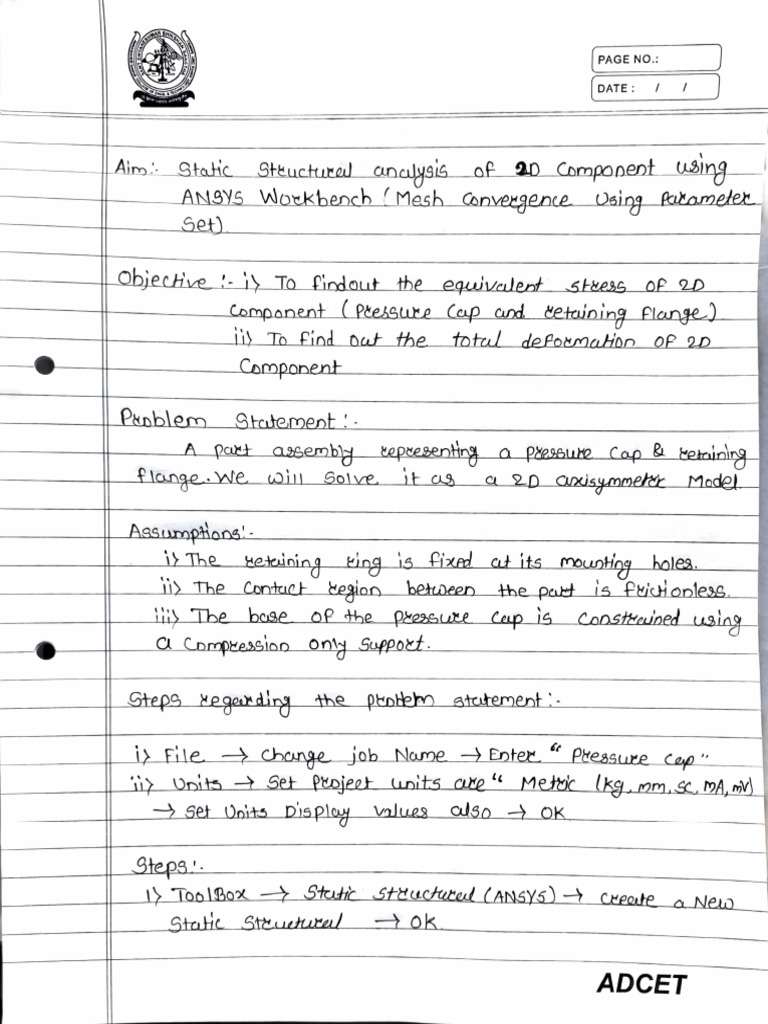 PAGE NO.:
DATE : / /
Aim:- Static Structural analysis of 2D Component using
ANSYS Workbench (Mesh Convergence Using Parameter
Set).
Objective :- i) To findout the equivalent stress of 2D
Component (Pressure Cap and retaining flange)
ii) To find out the total deformation of 2D
Component
Problem Statement:-
A part assembly representing a pressure Cap & retaining
flange. We will solve it as a 2D axisymmetric Model.
Assumptions:-
i) The retaining ring is fixed at its mounting holes.
ii) The Contact region between the part is frictionless.
iii) The base of the pressure cap is constrained using
a Compression only support.
Steps regarding the problem statement:-
i) File → Change job Name → Enter "Pressure cap"
ii) Units → Set Project units are "Metric (kg, mm, sc, mA, mV)
→ Set Units Display values also → OK
Steps:-
1) ToolBox → Static Structural (ANSYS) → create a New
Static Structural → OK
ADCET